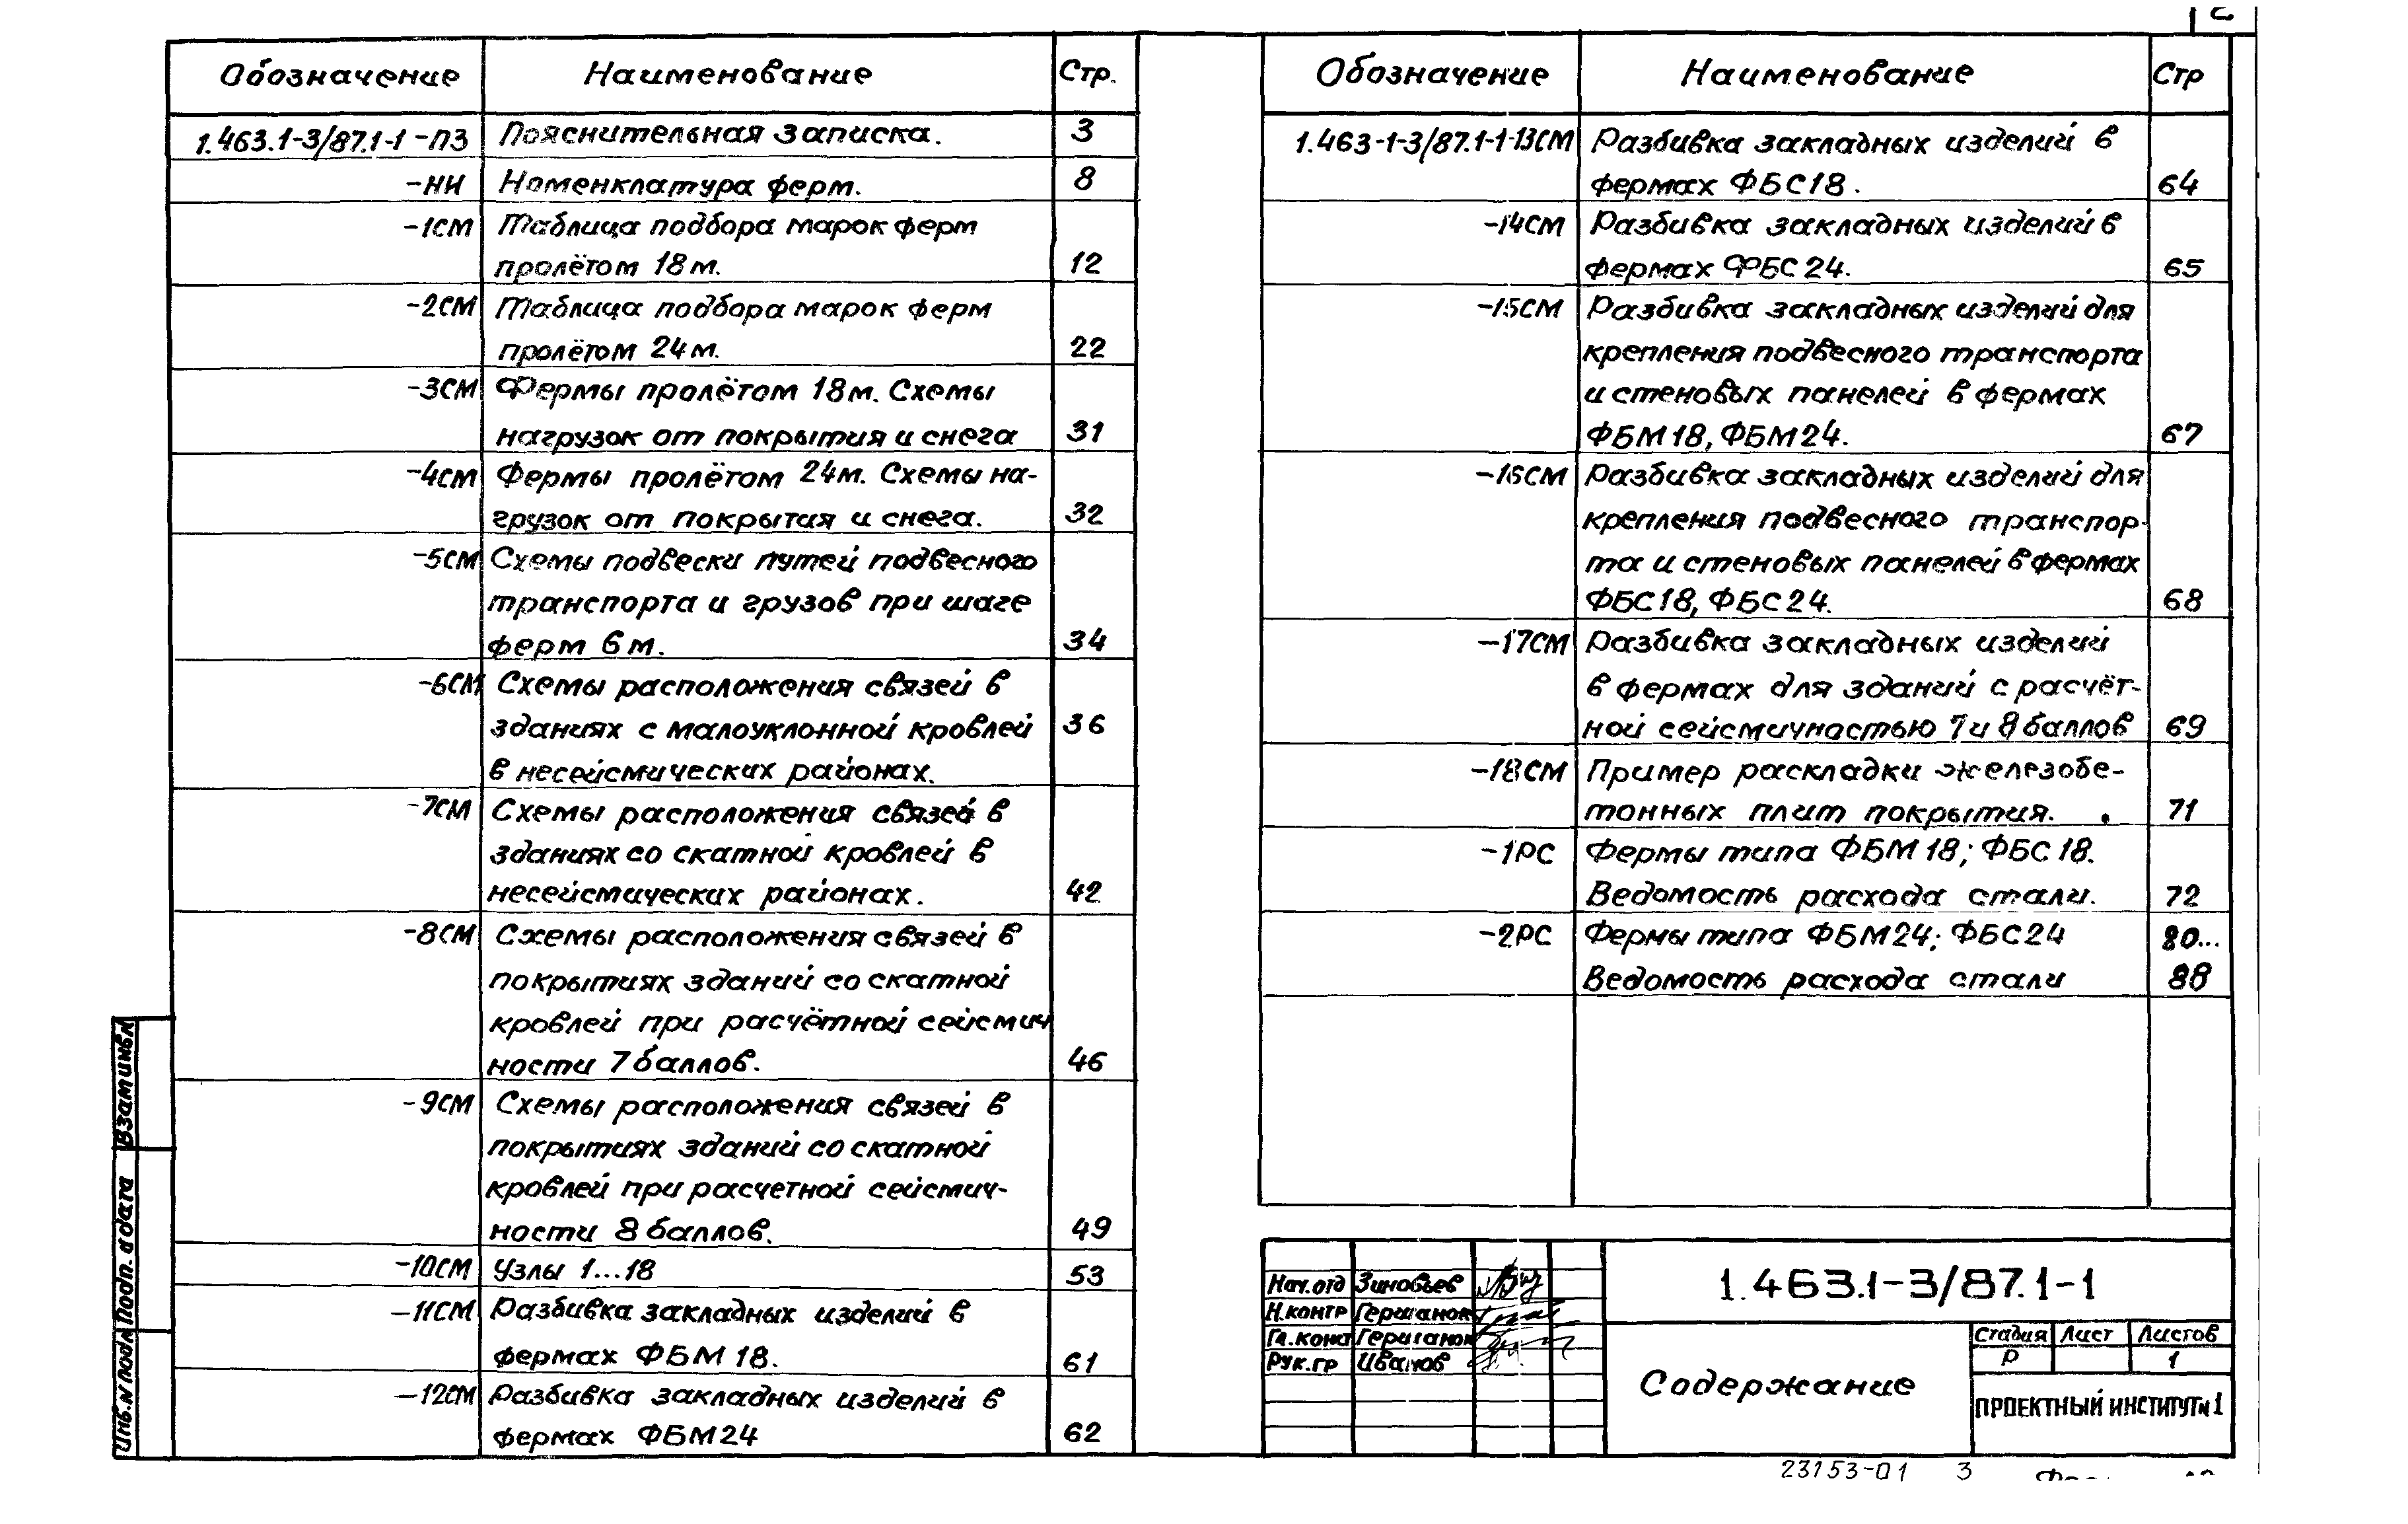 2
Обозначение Наименование Стр.
1.463.1-3/87.1-1-ПЗ Пояснительная записка. 3
-НИ Номенклатура ферм. 8
-1СМ Таблица подбора марок ферм
пролётом 18м. 12
-2СМ Таблица подбора марок ферм
пролётом 24м. 22
-3СМ Фермы пролётом 18м. Схемы
нагрузок от покрытия и снега 31
-4СМ Фермы пролётом 24м. Схемы на-
грузок от покрытия и снега. 32
-5СМ Схемы подвески путей подвесного
транспорта и грузов при шаге
ферм 6м. 34
-6СМ Схемы расположения связей в
зданиях с малоуклонной кровлей 36
в несейсмических районах.
-7СМ Схемы расположения связей в
зданиях со скатной кровлей в
несейсмических районах. 42
-8СМ Схемы расположения связей в
покрытиях зданий со скатной
кровлей при расчётной сейсмич
ности 7 баллов. 46
-9СМ Схемы расположения связей в
покрытиях зданий со скатной
кровлей при расчетной сейсмич-
ности 8 баллов. 49
-10СМ Узлы 1...18 53
-11СМ Разбивка закладных изделий в
фермах ФБМ 18. 61
-12СМ Разбивка закладных изделий в
фермах ФБМ24 62
Обозначение Наименование Стр
1.463-1-3/87.1-1-13СМ Разбивка закладных изделий в
фермах ФБС18. 64
-14СМ Разбивка закладных изделий в
фермах ФБС24. 65
-15СМ Разбивка закладных изделий для
крепления подвесного транспорта
и стеновых панелей в фермах
ФБМ18, ФБМ24. 67
-16СМ Разбивка закладных изделий для
крепления подвесного транспор-
та и стеновых панелей в фермах
ФБС18, ФБС24. 68
-17СМ Разбивка закладных изделий
в фермах для зданий с расчёт-
ной сейсмичностью 7 и 8 баллов 69
-18СМ Пример раскладки железобе-
тонных плит покрытия. 71
-1РС Фермы типа ФБМ18; ФБС18.
Ведомость расхода стали. 72
-2РС Фермы типа ФБМ24; ФБС24 80...
Ведомость расхода стали 88
Взам инв.N
Подп. и дата
Инв.N подл
Нач.отд Зиновьев
Н.контр Гершанок
Гл.конс Гершанок
Рук.гр Иванов
1.463.1-3/87.1-1
Содержание
Стадия Лист Листов
Р 1
ПРОЕКТНЫЙ ИНСТИТУТ N1
23153-01 3